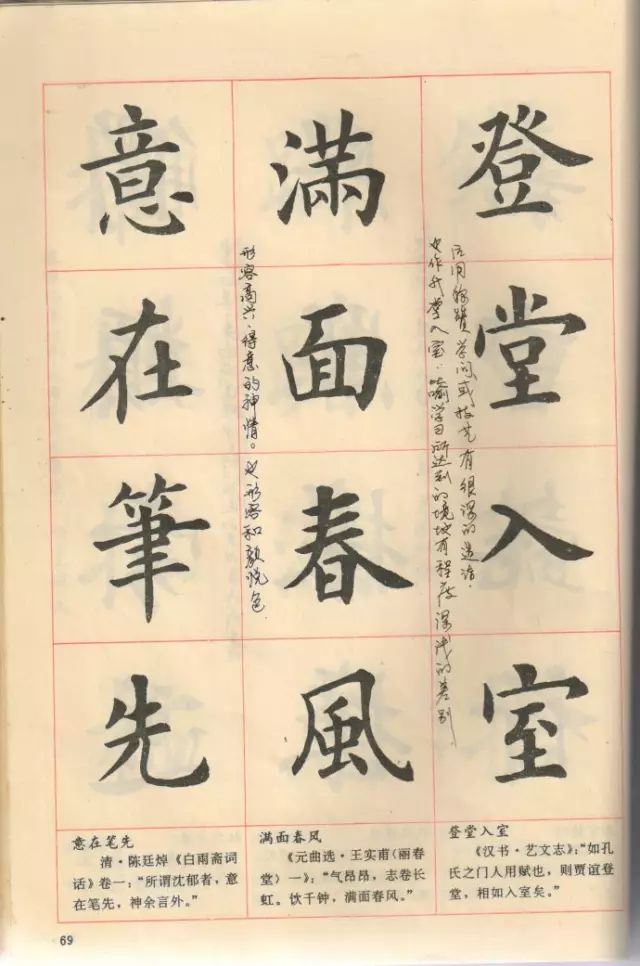 登堂入室
学问或技艺有很深的造诣.
也作升堂入室.喻学习所达到的境地有程度深浅的差别
滿面春風
形容高兴、得意的神情。也形容和颜悦色
意在筆先
登堂入室
《汉书·艺文志》:“如孔
氏之门人用赋也,则贾谊登
堂,相如入室矣。”
满面春风
《元曲选·王实甫(丽春
堂)一》:“气昂昂,志卷长
虹。饮千钟,满面春风。”
意在笔先
清·陈廷焯《白雨斋词
话》卷一:“所谓沈郁者,意
在笔先,神余言外。”
69